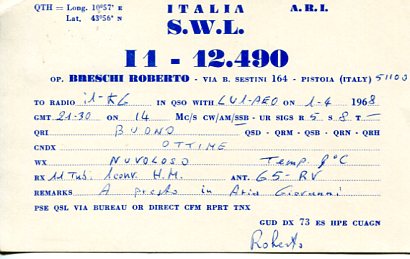 QTH = Long. 10°57' E ITALIA A.R.I.
Lat, 43°56' N S.W.L.
I1 - 12.490
OP. BRESCHI ROBERTO - VIA B. SESTINI 164 - PISTOIA (ITALY) 51100
TO RADIO i1- IN QSO WITH LU1- ON 1-4 1968
GMT 21-30 ON 14 Mc/s CW/AM/SSB - UR SIGS R 5 S 8 T -
QRI BUONO QSD - QRM - QSB - QRN - QRH
CNDX OTTIME
WX NUVOLOSO Temp. °C
RX 11 Tub. 1 conv. H.M. ANT. G5-RV
REMARKS A presto in Aria Giovanni
PSE QSL VIA BUREAU OR DIRECT CFM RPRT TNX
GUD DX 73 ES HPE CUAGN
Roberto